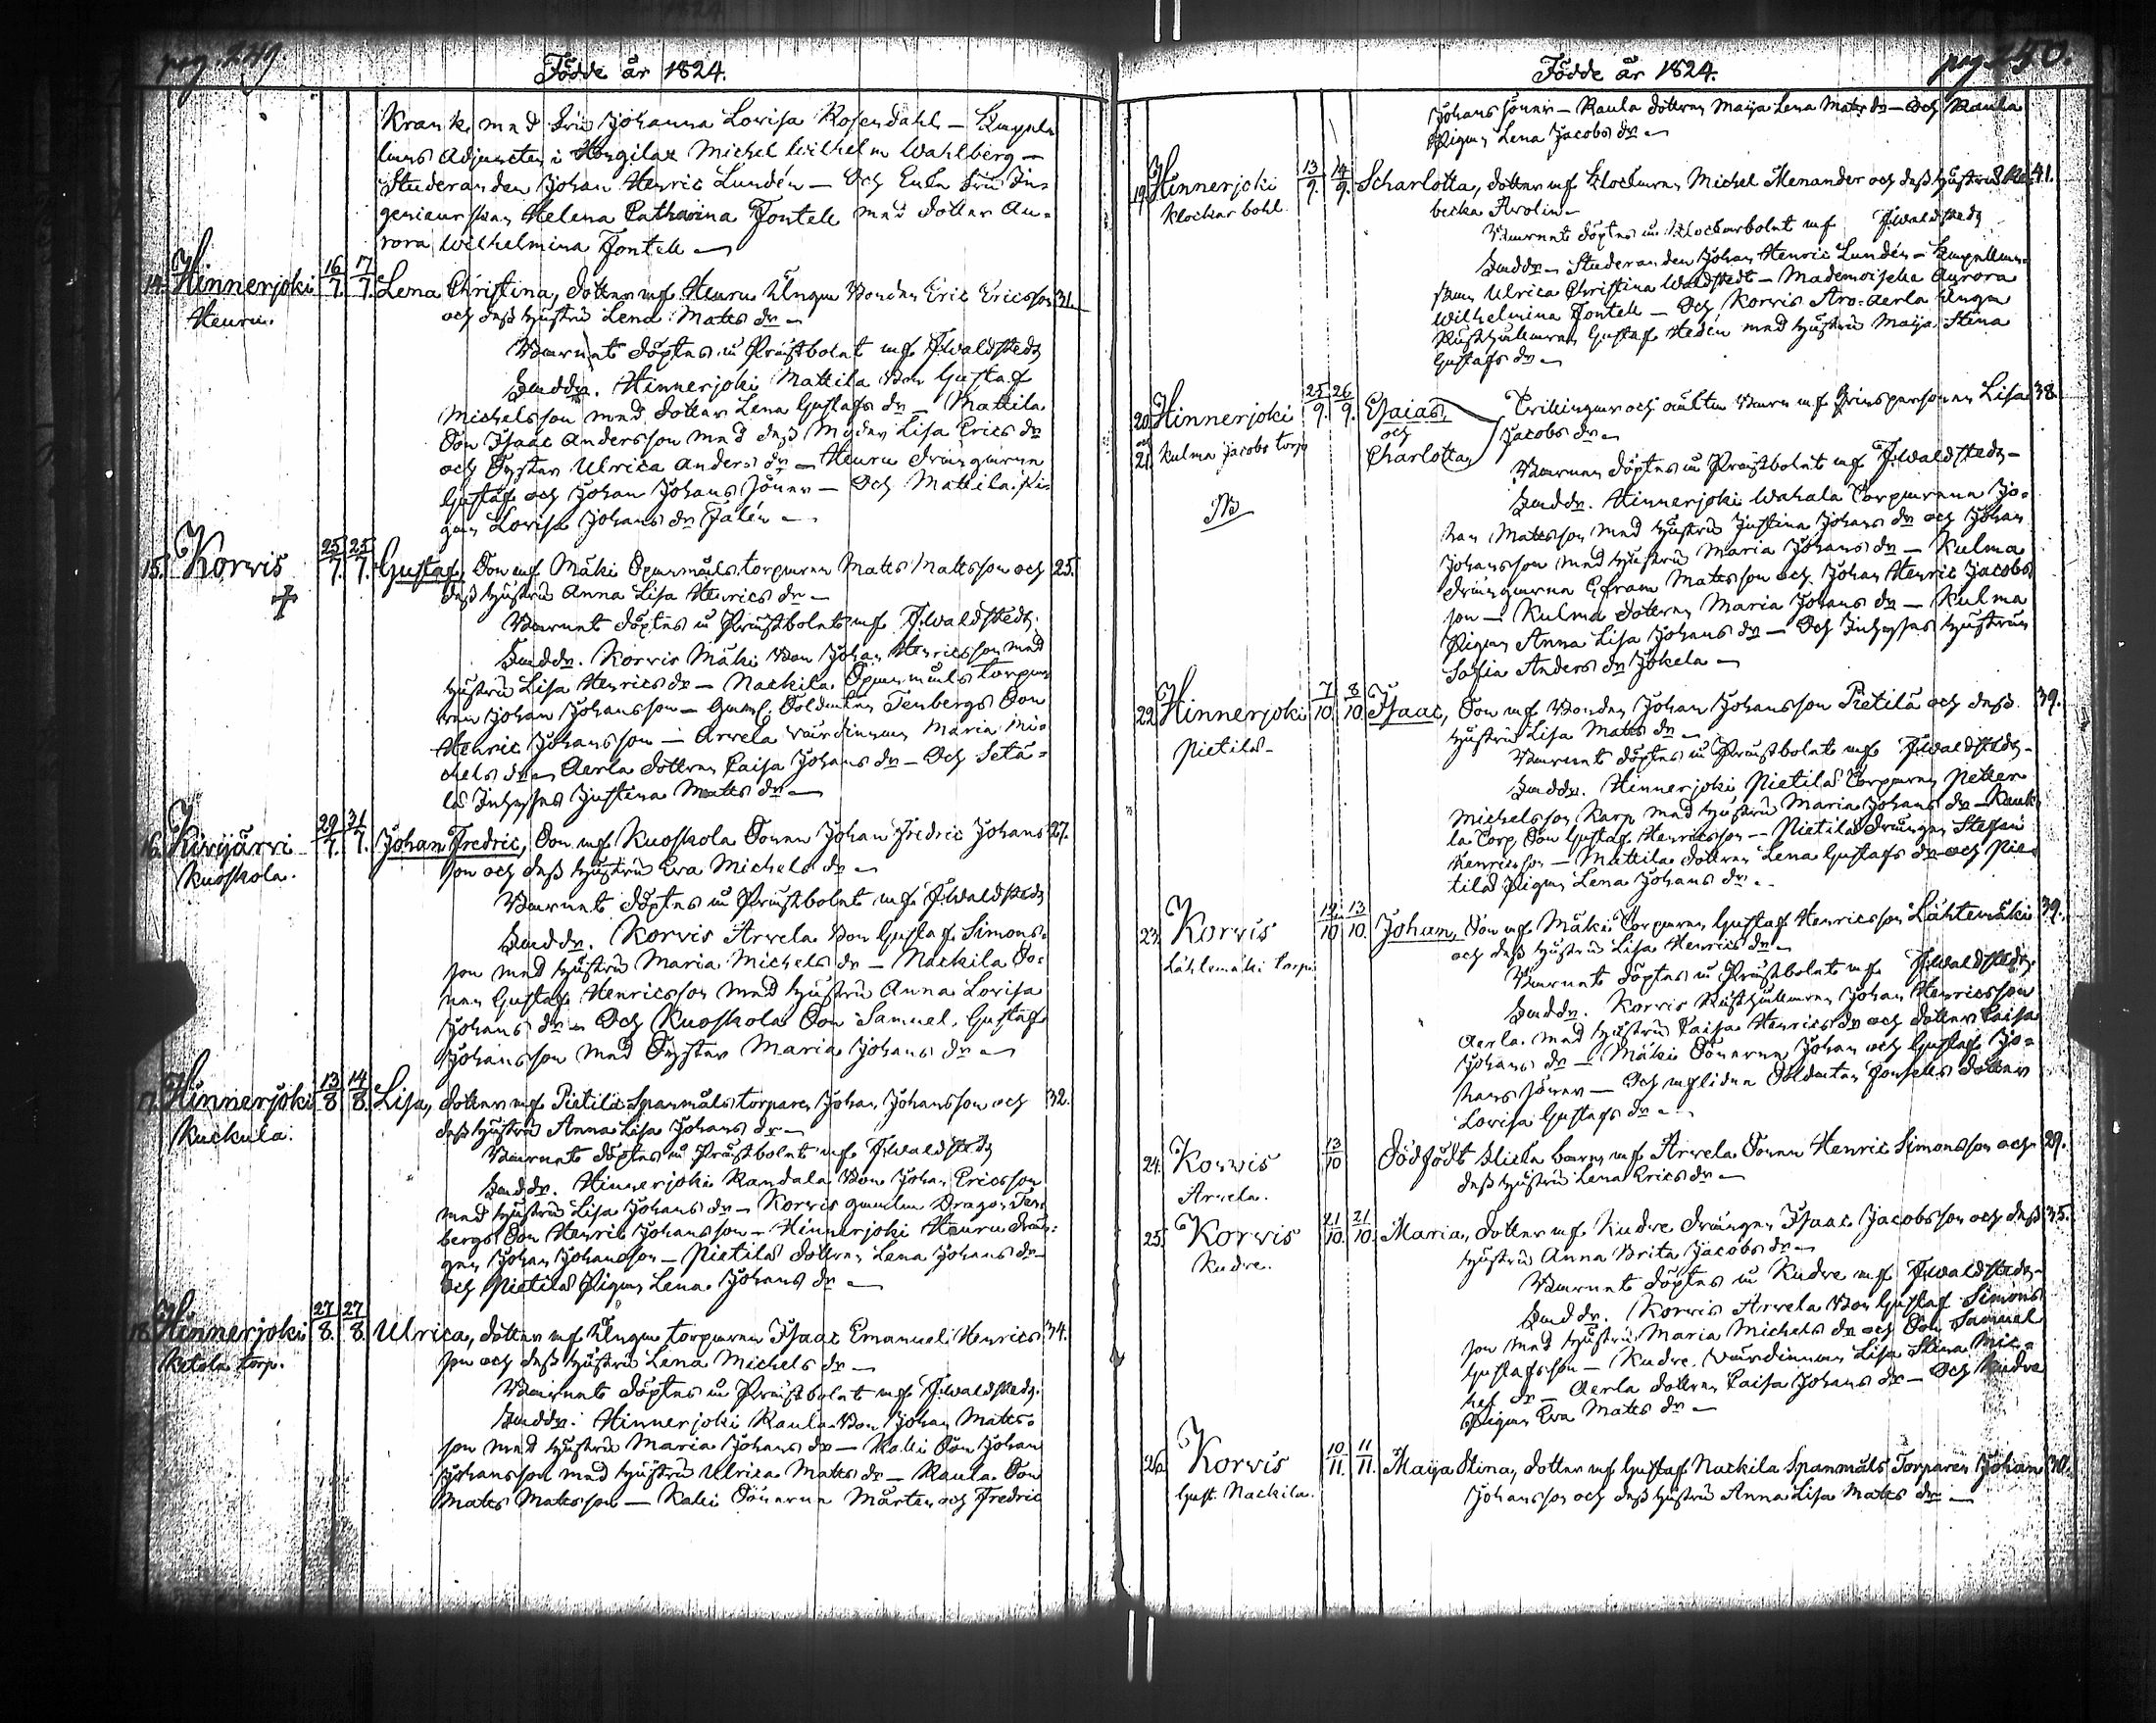 pag. 249.
Födde år 1824.
Krank med Fru Johanna Lovisa Rosendahl – Kapel-
lans Adjuncten i Hongilax Michel Wilhelm Wahlberg –
Studeranden Johan Henric Lundén – Och Enke Fru In-
genieurskan Helena Catharina Fontell med dotter Au-
rora Wilhelmina Fontell –
14. Hinnerjoki 16/7. 17/7. Lena Christina, dotter af Heuru Unga Bonden Eric Ericsson 31.
Heuru. och dess hustru Lena Matts dr –
Barnet döptes i Prästbolet af F. Waldstedt
Fadd. Hinnerjoki Mattila Bon Gustaf
Michelsson med dotter Lena Gustafs dr – Mattila
Son Isaac Andersson med dess Moder Lisa Erics dr
och Syster Ulrica Anders dr – Heuru drängarne
Gustaf och Johan Johans Söner – Och Mattila Pi-
gan Lovisa Johans dr Falén –
15. Korvis 25/7. 25/7. Gustaf, Son af Mäki Spanmåls torparen Matts Mattsson och 25.
dess hustru Anna Lisa Henrics dr –
Barnet döptes i Prästbolet af F. Waldstedt.
Fadd. Korvis Mäki Bon Johan Henricsson med
hustru Lisa Henrics dr – Nackila Spanmåls torpa-
ren Johan Johansson – Gaml. Soldaten Tenbergs Son
Henric Johansson – Arvela värdinnan Maria Mi-
chels dr – Aerla dottren Caisa Johans dr – Och Setä-
lä Inhyses Justina Matts dr –
16. Kivijärvi 29/7. 31/7. Johan Fredric, Son af Kuoskola Sonen Johan Fredric Johans 27.
Kuoskola. son och dess hustru Eva Michels dr –
Barnet döptes i Prästbolet af F. Waldstedt
Fadd. Korvis Arvela Bon Gustaf Simons-
son med hustru Maria Michels dr – Nackila So-
nen Gustaf Henricsson med hustru Anna Lovisa
Johans dr – Och Kuoskola Son Samuel Gustaf
Johansson med Syster Maria Johans dr –
17. Hinnerjoki 13/8. 14/8. Lisa, dotter af Pietilä Spanmåls torparen Johan Johansson och 32.
Kuckula. dess hustru Anna Lisa Johans dr –
Barnet döptes i Prästbolet af F. Waldstedt
Fadd. Hinnerjoki Randala Bon Johan Ericsson
med hustru Lisa Johans dr – Korvis gamla Dragon Ten-
bergs Son Henric Johansson – Hinnerjoki Heuru drän-
gen Johan Johansson – Pietilä dottren Lena Johans dr –
och Pietilä Pigan Lena Johans dr –
18. Hinnerjoki 27/8. 27/8. Ulrica, dotter af Unga torparen Isaac Emanuel Henrics 34.
Ketola torp. son och dess hustru Lena Michels dr –
Barnet döptes i Prästbolet af F. Waldstedt.
Fadd. Hinnerjoki Raula Bon Johan Matts-
son med hustru Maria Johans dr – Kaki Son Johan
Johansson med hustru Ulrica Matts dr – Raula Son
Matts Mattsson – Kaki Sönerne Mårten och Fredric
pag. 250.
Födde år 1824.
Johans Söner – Raula dottren Maija Lena Matts dr – Och Raula
Pigan Lena Jacobs dr –
19. Hinnerjoki 13/9. 14/9. Scharlotta, dotter af Klockaren Michel Menander och dess hustru Re- 41.
Klockar bohl. becka Avolin –
Barnet döptes i Klockarbolet af F. Waldstedt
Fadd – Studeranden Johan Henric Lundén – Kapellans-
skan Ulrica Christina Waldstedt – Mademoiselle Aurora
Wilhelmina Fontell – Och Korvis Aro-Aerla Unga
Rusthållaren Gustaf Hedén med hustru Maija Stina
Gustafs dr –
20 Hinnerjoki 25/9. 26/9. Esaias, Tvillingar och oäkta Barn af Qvinspersonen Lisa 38.
och och Jacobs dr –
21. Kulma Jacobs torp Charlotta,
Barnen döptes i Prästbolet af F. Waldstedt –
NB Fadd. Hinnerjoki Wahala Torparena Jo-
han Mattsson med hustru Justina Johans dr och Johan
Johansson med hustru Maria Johans dr – Kulma
drängarne Efram Mattsson och Johan Henric Jacobs
son – Kulma dottren Maria Johans dr – Kulma
Pigan Anna Lisa Johans dr – Och Inhyses hustrun
Sofia Anders dr Jokela –
22. Hinnerjoki 7/10. 8/10. Isaac, Son af Bonden Johan Johansson Pietilä och dess 39.
Pietilä – hustru Lisa Matts dr –
Barnet döptes i Prästbolet af F. Waldstedt –
Fadd. Hinnerjoki Pietilä Torparen Petter
Michelsson Karp med hustru Maria Johans dr – Kauk-
la Torp Son Gustaf Henricsson – Pietilä drängen Stefan
Henricsson – Mattila dottren Lena Gustafs dr och Pie-
tilä Pigan Lena Johans dr –
23. Korvis 12/10 13/10. Johan, Son af Mäki Torparen Gustaf Henricsson Lähtemäki 39.
Lähtemäki torp och dess hustru Lisa Henrics dr –
Barnet döptes i Prästbolet af F. Waldstedt.
Fadd. Korvis Rusthållaren Johan Henricsson
Aerla med hustru Caisa Henrics dr och dotter Caisa
Johans dr – Mäki Sönerne Johan och Gustaf Jo-
hans Söner – Och aflidne Soldaten Fonsells dotter
Lovisa Gustafs dr –
24. Korvis 13/10 Dödfödt flicke barn af Arvela Sonen Henric Simonsson och 29.
Arvela. dess hustru Lena Erics dr –
25. Korvis 21/10. 21/10. Maria, dotter af Kudre drängen Isaac Jacobsson och dess 35.
Kudre. hustru Anna Brita Jacobs dr –
Barnet döptes i Kudre af F. Waldstedt –
Fadd. Korvis Arvela Bon Gustaf Simons
son med hustru Maria Michels dr och Son Samuel
Gustafsson – Kudre värdinnan Lisa Stina Mic-
hels dr – Aerla dottren Caisa Johans dr – Och Kudre
Pigan Eva Matts dr –
26. Korvis 10/11. 11/11. Maija Stina, dotter af Gustaf Nackila Spanmåls Torparen Johan 30.
Gust. Nackila. Johansson och dess hustru Anna Lisa Matts dr –